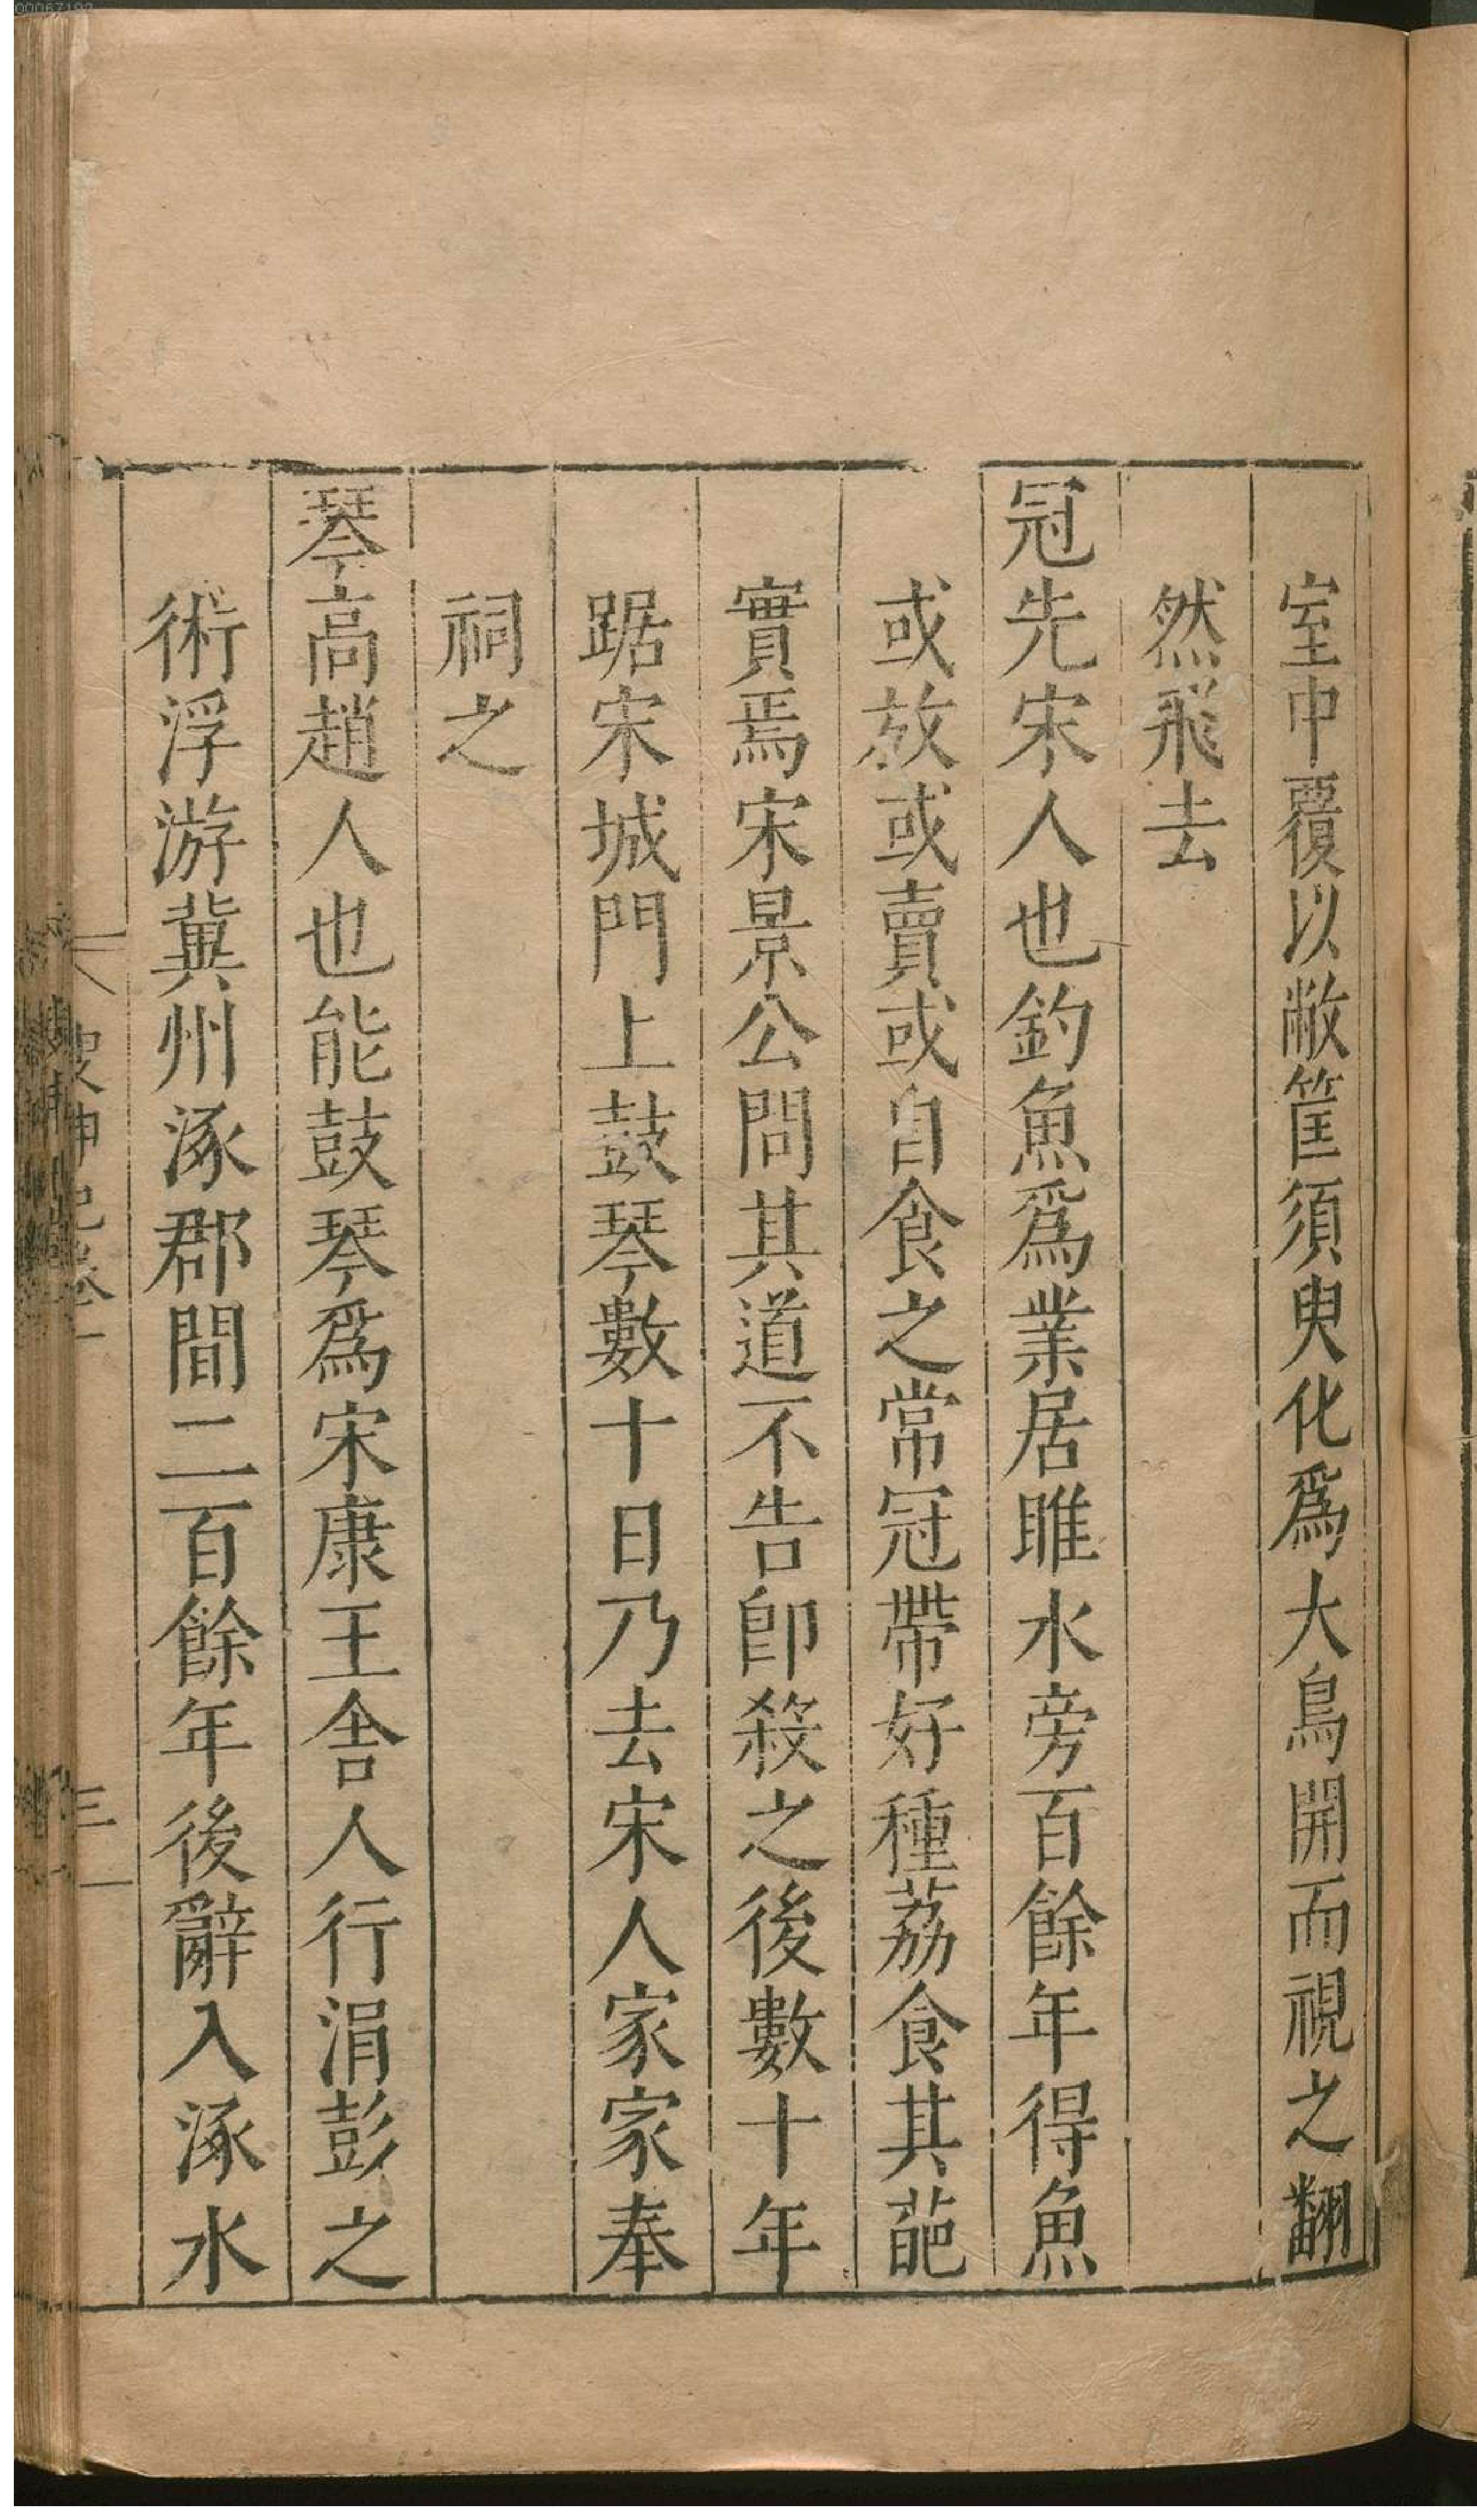 室中覆以敝筐須臾化爲大鳥開而視之翻
然飛去
冠先宋人也釣魚爲業居睢水旁百餘年得魚
或放或賣或自食之常冠帶好種荔食其葩
實焉宋景公問其道不告卽殺之後數十年
踞宋城門上鼓琴數十日乃去宋人家家奉
祠之
琴高趙人也能鼓琴爲宋康王舍人行涓彭之
術浮游冀州涿郡間二百餘年後辭入涿水
搜神記卷一
三
00067192